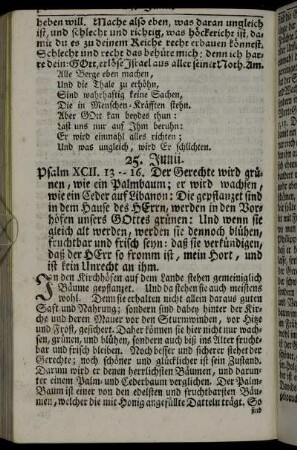 heben will. Mache also eben, was daran ungleich
ist, und schlecht und richtig, was höckericht ist, da-
mit du es zu deinem Reiche recht erbauen könnest.
Schlecht und recht das behüte mich; denn ich har-
re dein: GOtt, erlöse Israel aus aller seiner Noth. Am.
Alle Berge eben machen,
Und die Thale zu erhöhn,
Sind wahrhaftig keine Sachen,
Die in Menschen-Kräfften stehn.
Aber GOtt kan beydes thun:
Last uns nur auf Ihm beruhn:
Er wird einmahl alles richten;
Und was ungleich, wird Er schlichten.
25. Junii.
Psalm XCII. 13 -- 16. Der Gerechte wird grü-
nen, wie ein Palmbaum; er wird wachsen,
wie ein Ceder auf Libanon: Die gepflantzet sind
in dem Hause des HErrn, werden in den Vor-
höfen unsers GOttes grünen: Und wenn sie
gleich alt werden, werden sie dennoch blühen,
fruchtbar und frisch seyn: daß sie verkündigen,
daß der HErr so fromm ist, mein Hort, und
ist kein Unrecht an ihm.
In den Kirchhöfen auf dem Lande stehen gemeiniglich
Bäume gepflantzt. Und da stehen sie auch meistens
wohl. Denn sie erhalten nicht allein daraus guten
Saft und Nahrung; sondern sind dabey hinter der Kir-
che und deren Mauer vor den Sturmwinden, vor Hitze
und Frost, gesichert. Daher können sie hier nicht nur wach-
sen, grünen, und blühen, sondern auch biß ins Alter frucht-
bar und frisch bleiben. Noch besser und sicherer stehet der
Gerechte; noch schöner und glücklicher ist sein Zustand.
Darum wird er denen herrlichsten Bäumen, und darun-
ter einem Palm- und Cederbaum verglichen. Der Palm-
Baum ist einer von den edelsten und fruchtbarsten Bäu-
men, welcher die mit Honig angefüllte Datteln trägt. So
sind